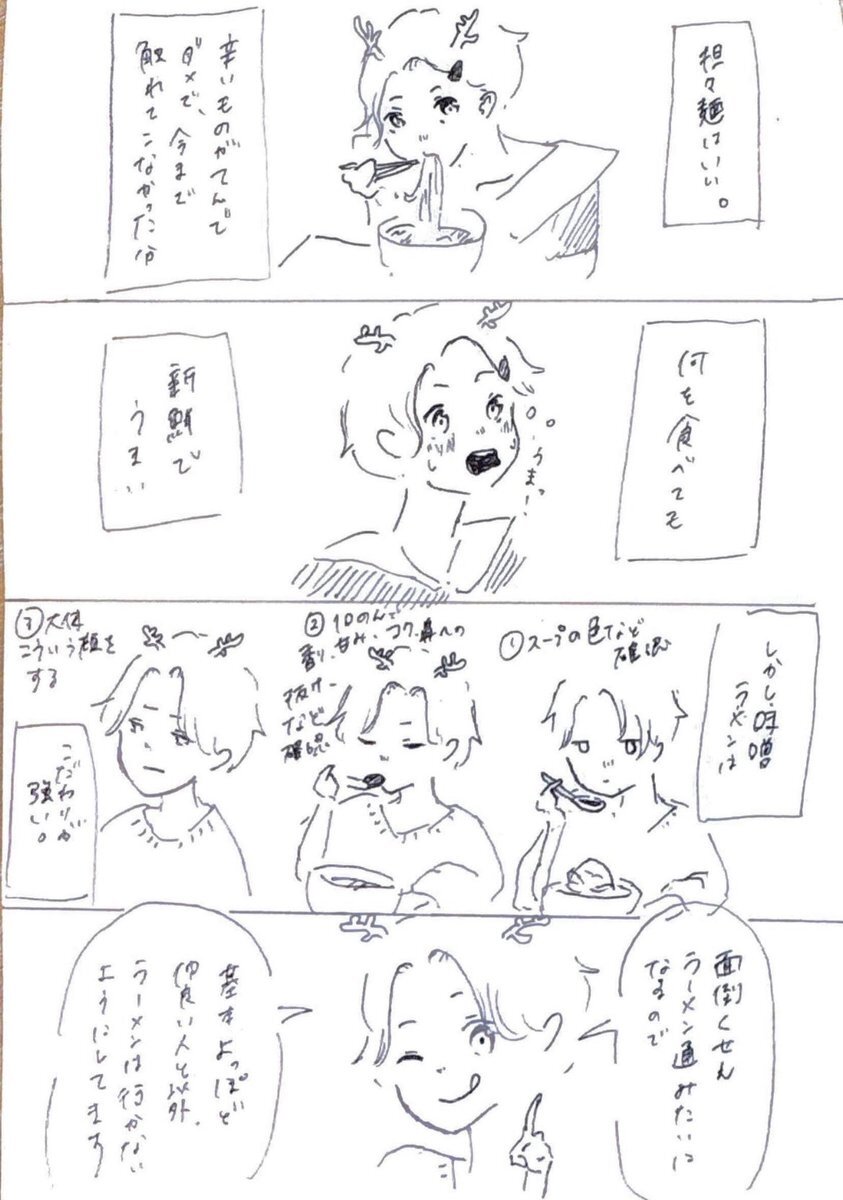 担々麺はいい。
辛いものがてんで
ダメで、今まで
触れてこなかった分
何を食べても
うまっ!
新鮮で
うまい
しかし味噌
ラーメンは
①スープの色など
確認
②1口のんで
香り、甘み、コク、鼻への
抜け
など
確認
③大体
こういう顔を
する
こだわりが
強い。
面倒くせえ
ラーメン通みたいに
なるので
基本よっぽど
仲良い人と以外、
ラーメンは行かない
ようにしてます